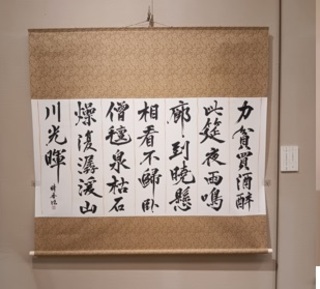 力貧買酒醉
此筵夜雨鳴
廊到曉懸
相看不歸臥
僧氈泉枯石
燥復潺湲山
川光暉